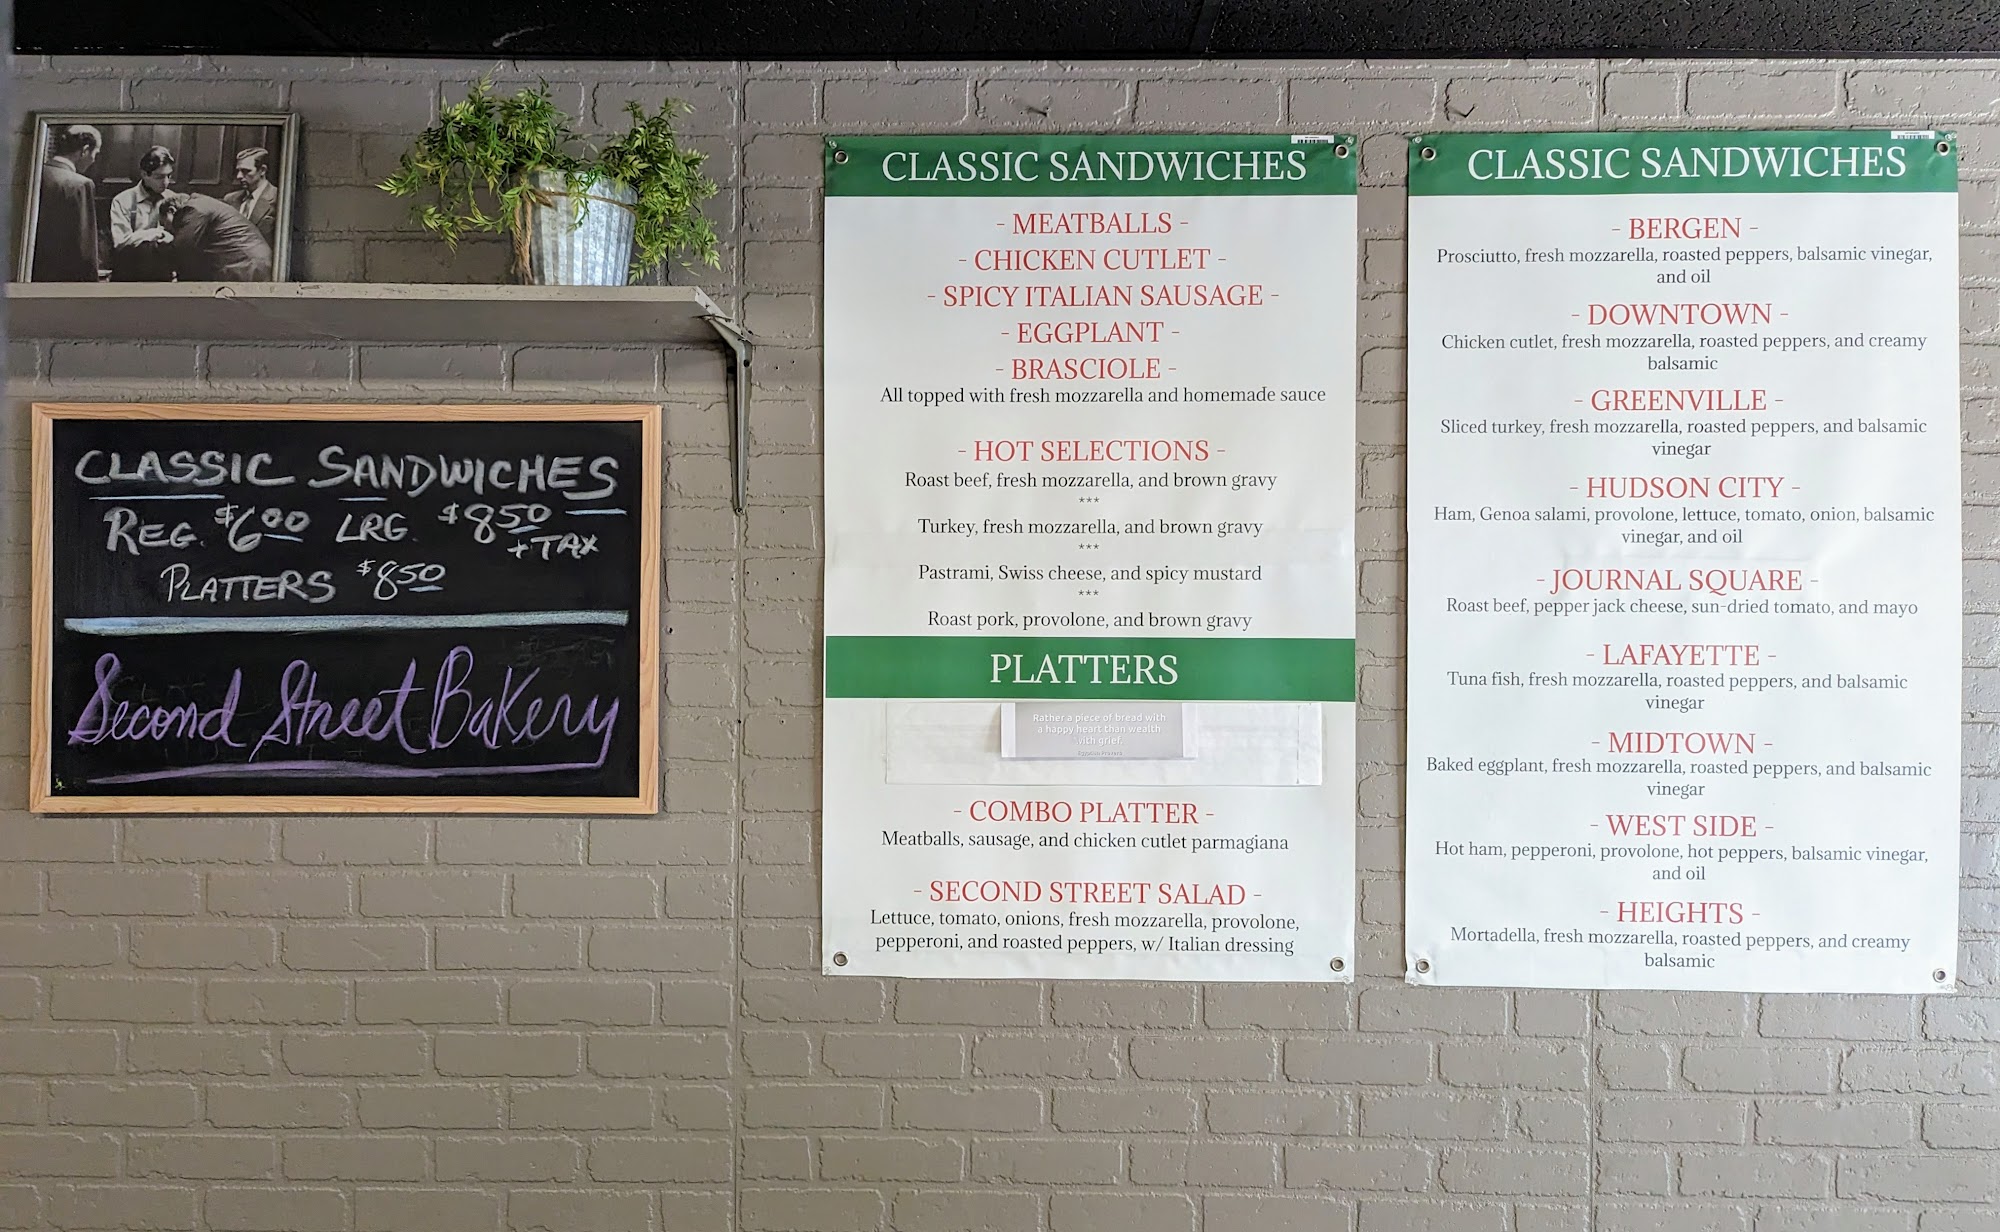 CLASSIC SANDWICHES
REG. $6.00 LRG. $8.50
+ TAX
PLATTERS $8.50
Second Street Bakery
CLASSIC SANDWICHES
- MEATBALLS -
- CHICKEN CUTLET -
- SPICY ITALIAN SAUSAGE -
- EGGPLANT -
- BRASCIOLE -
All topped with fresh mozzarella and homemade sauce
- HOT SELECTIONS -
Roast beef, fresh mozzarella, and brown gravy
***
Turkey, fresh mozzarella, and brown gravy
***
Pastrami, Swiss cheese, and spicy mustard
***
Roast pork, provolone, and brown gravy
PLATTERS
Rather a piece of bread with
a happy heart than wealth
with grief.
Egyptian Proverb
- COMBO PLATTER -
Meatballs, sausage, and chicken cutlet parmagiana
- SECOND STREET SALAD -
Lettuce, tomato, onions, fresh mozzarella, provolone,
pepperoni, and roasted peppers, w/ Italian dressing
CLASSIC SANDWICHES
- BERGEN -
Prosciutto, fresh mozzarella, roasted peppers, balsamic vinegar,
and oil
- DOWNTOWN -
Chicken cutlet, fresh mozzarella, roasted peppers, and creamy
balsamic
- GREENVILLE -
Sliced turkey, fresh mozzarella, roasted peppers, and balsamic
vinegar
- HUDSON CITY -
Ham, Genoa salami, provolone, lettuce, tomato, onion, balsamic
vinegar, and oil
- JOURNAL SQUARE -
Roast beef, pepper jack cheese, sun-dried tomato, and mayo
- LAFAYETTE -
Tuna fish, fresh mozzarella, roasted peppers, and balsamic
vinegar
- MIDTOWN -
Baked eggplant, fresh mozzarella, roasted peppers, and balsamic
vinegar
- WEST SIDE -
Hot ham, pepperoni, provolone, hot peppers, balsamic vinegar,
and oil
- HEIGHTS -
Mortadella, fresh mozzarella, roasted peppers, and creamy
balsamic